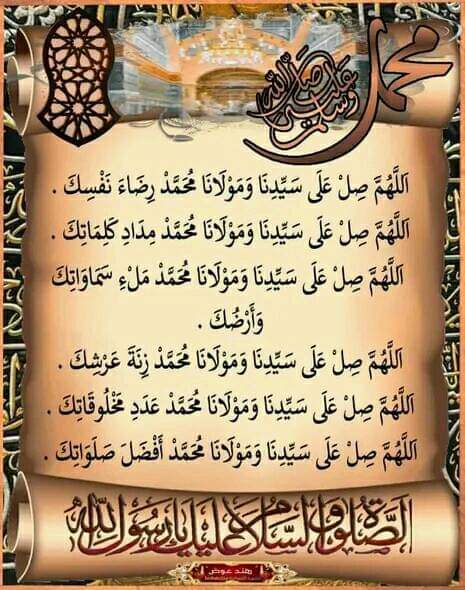 محمد
صلى الله عليه وسلم
اَللَّهُمَّ صِلْ عَلَى سَيِّدِنَا وَمَوْلَانَا مُحَمَّدْ رِضَاءَ نَفْسِكَ .
اَللَّهُمَّ صِلْ عَلَى سَيِّدِنَا وَمَوْلَانَا مُحَمَّدْ مِدَادِ كَلِمَاتِكَ .
اَللَّهُمَّ صِلْ عَلَى سَيِّدِنَا وَمَوْلَانَا مُحَمَّدْ مَلْءِ سَمَاوَاتِكَ
وَأَرْضُكَ .
اَللَّهُمَّ صِلْ عَلَى سَيِّدِنَا وَمَوْلَانَا مُحَمَّدْ زِنَةَ عَرْشِكَ .
اَللَّهُمَّ صِلْ عَلَى سَيِّدِنَا وَمَوْلَانَا مُحَمَّدْ عَدَدِ مَخْلُوقَاتِكَ .
اَللَّهُمَّ صِلْ عَلَى سَيِّدِنَا وَمَوْلَانَا مُحَمَّدْ أَفْضَلَ صَلَوَاتِكَ .
الصلاة والسلام عليك يا رسول الله
هند عوض